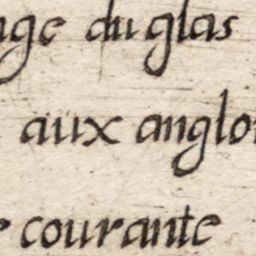 nge du glas
aux anglo
e courante